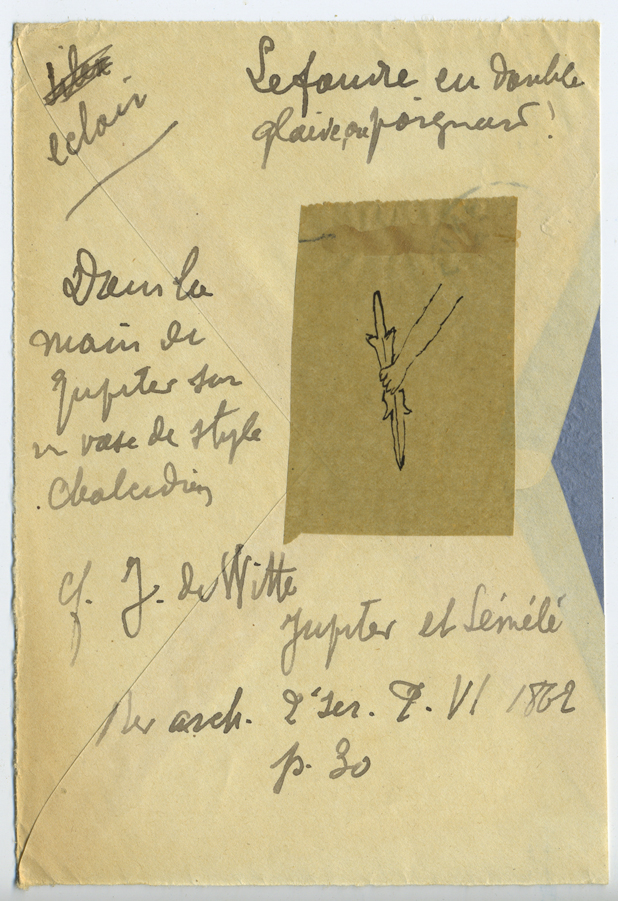 eclair
Le foudre en double
glaive, ou poignard !
Dans la
main de
Jupiter sur
un vase de style
Chalcidien
cf. J. de Witte
Jupiter et Sémélé
Rev arch. 2e ser. T. VI 1862
p. 30